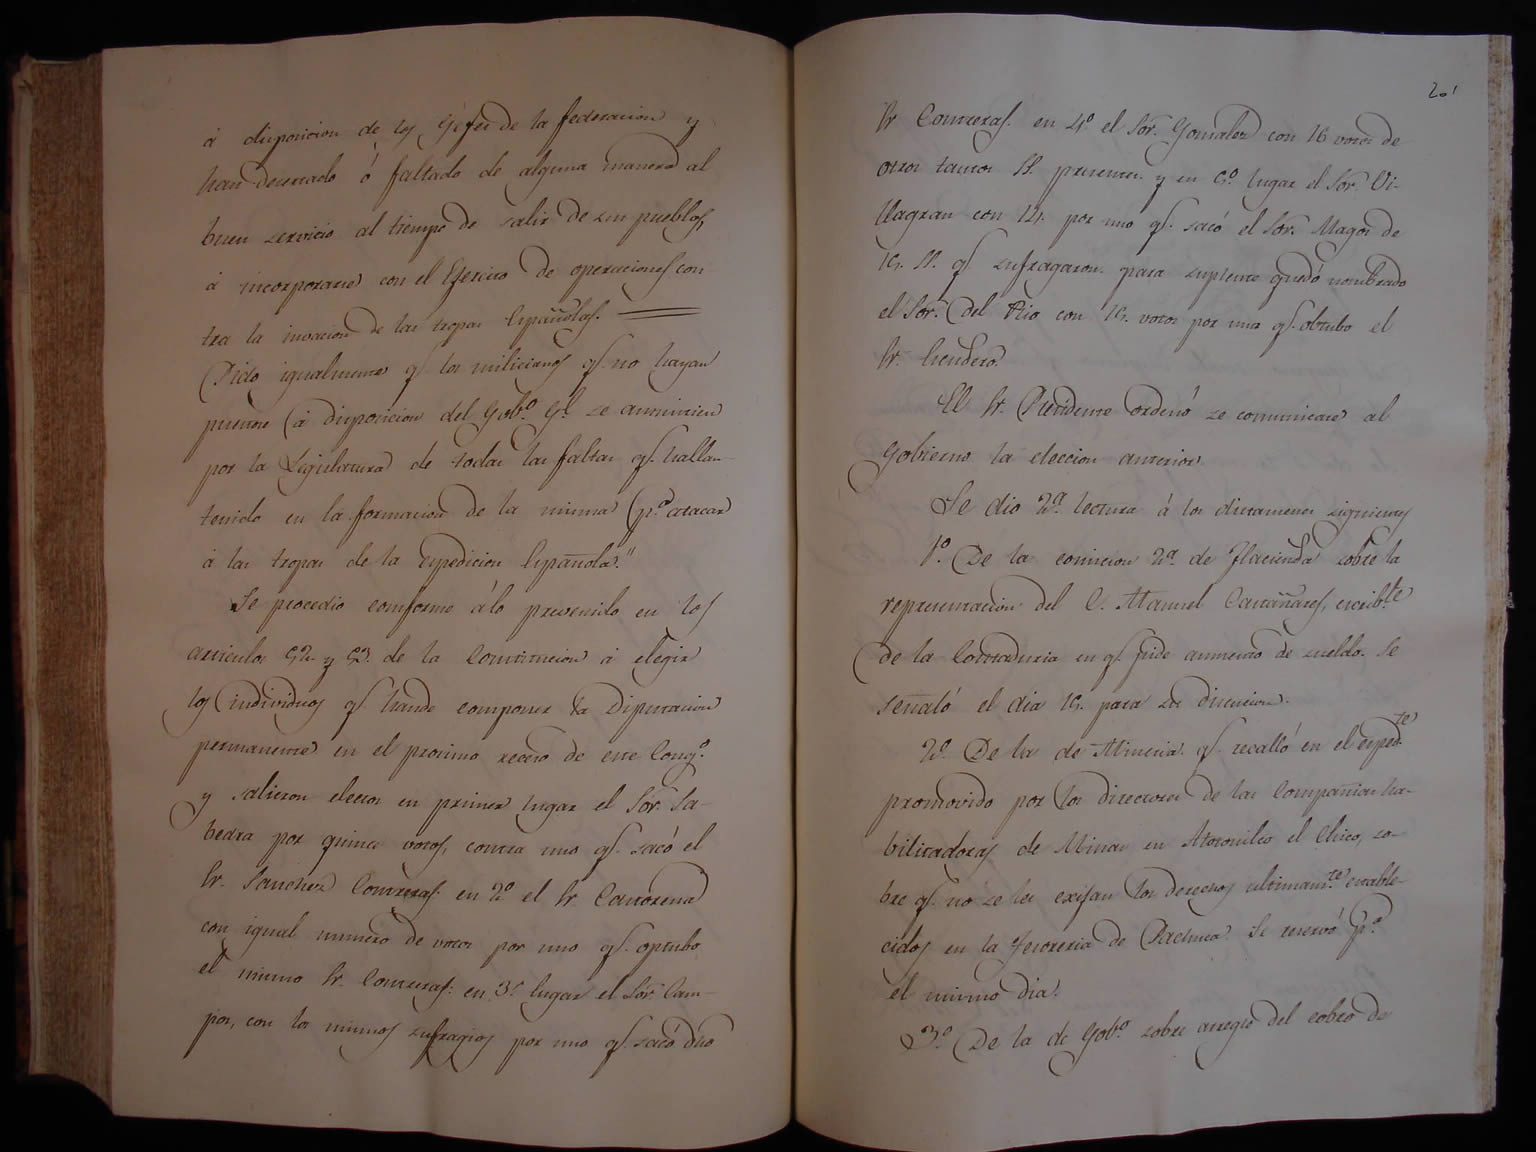 á disposicion de los Gefes de la federacion y
han desertado ó faltado de alguna manera al
buen servicio al tiempo de salir de sus pueblos,
á incorporarse con el Ejercito de operaciones con-
tra la invacion de las tropas Españolas.
Pido igualmente qe. los milicianos qe. no hayan
puesto á disposicion del Gobo. Gl. se anuncien
por la Legislatura de todas las faltas qe. hallan
tenido en la formacion de la misma pa. atacar
á las tropas de la Expedicion Española."
Se procedio comforme álo prevenido en los
articulos 52 y 53 de la Constitucion á elegir
los individuos qe. hande componer la Diputacion
permanente en el procsimo receso de este Congo.
y salieron electos en primer lugar el Sor. Sa-
bedra por quince votos, contra uno qe. sacó el
Sr. Sanchez Contreras: en 2o. el Sr. Castorena
con igual numero de votos por uno qe. optubo
el mismo Sr. Contreras: en 3r. lugar el Sor. Cam-
pos, con los mismos sufragios por uno qe. sacó dho
201
Sr. Contreras. en 4o. el Sor. Gonzalez con 16 votos de
otros tantos SS. presentes. y en 5o. lugar el Sor. Vi-
llagran con 14. por uno qe. sacó el Sor. Magos de
15. SS. qe. sufragaron. para suplente quedó nombrado
el Sor. Del Rio con 15. votos por uno qe. obtubo el
Sr. Guerrero.
El Sr. Presidente ordenó se comunicase al
Gobierno la eleccion anterior.
Se dio 2a. lectura á los dictamenes siguientes
1o. De la comicion 2a. de Hacienda sobre la
representacion del C. Manuel Castañares, escribte.
de la Contaduria en qe. pide aumento de sueldo. Se
señaló el dia 15. para su discucion.
2o. De la de Mineria. qe. recalló en el expedte.
promovido por los directores de las Compañias ha-
bilitadoras de Minas en Atotonilco el Chico, so-
bre qe. no se les exijan los derechos ultimamte. estable-
cidos en la Tesoreria de Pachuca. Se reservó pa.
el mismo dia.
3o. De la de Gobo. sobre arreglo del cobro de